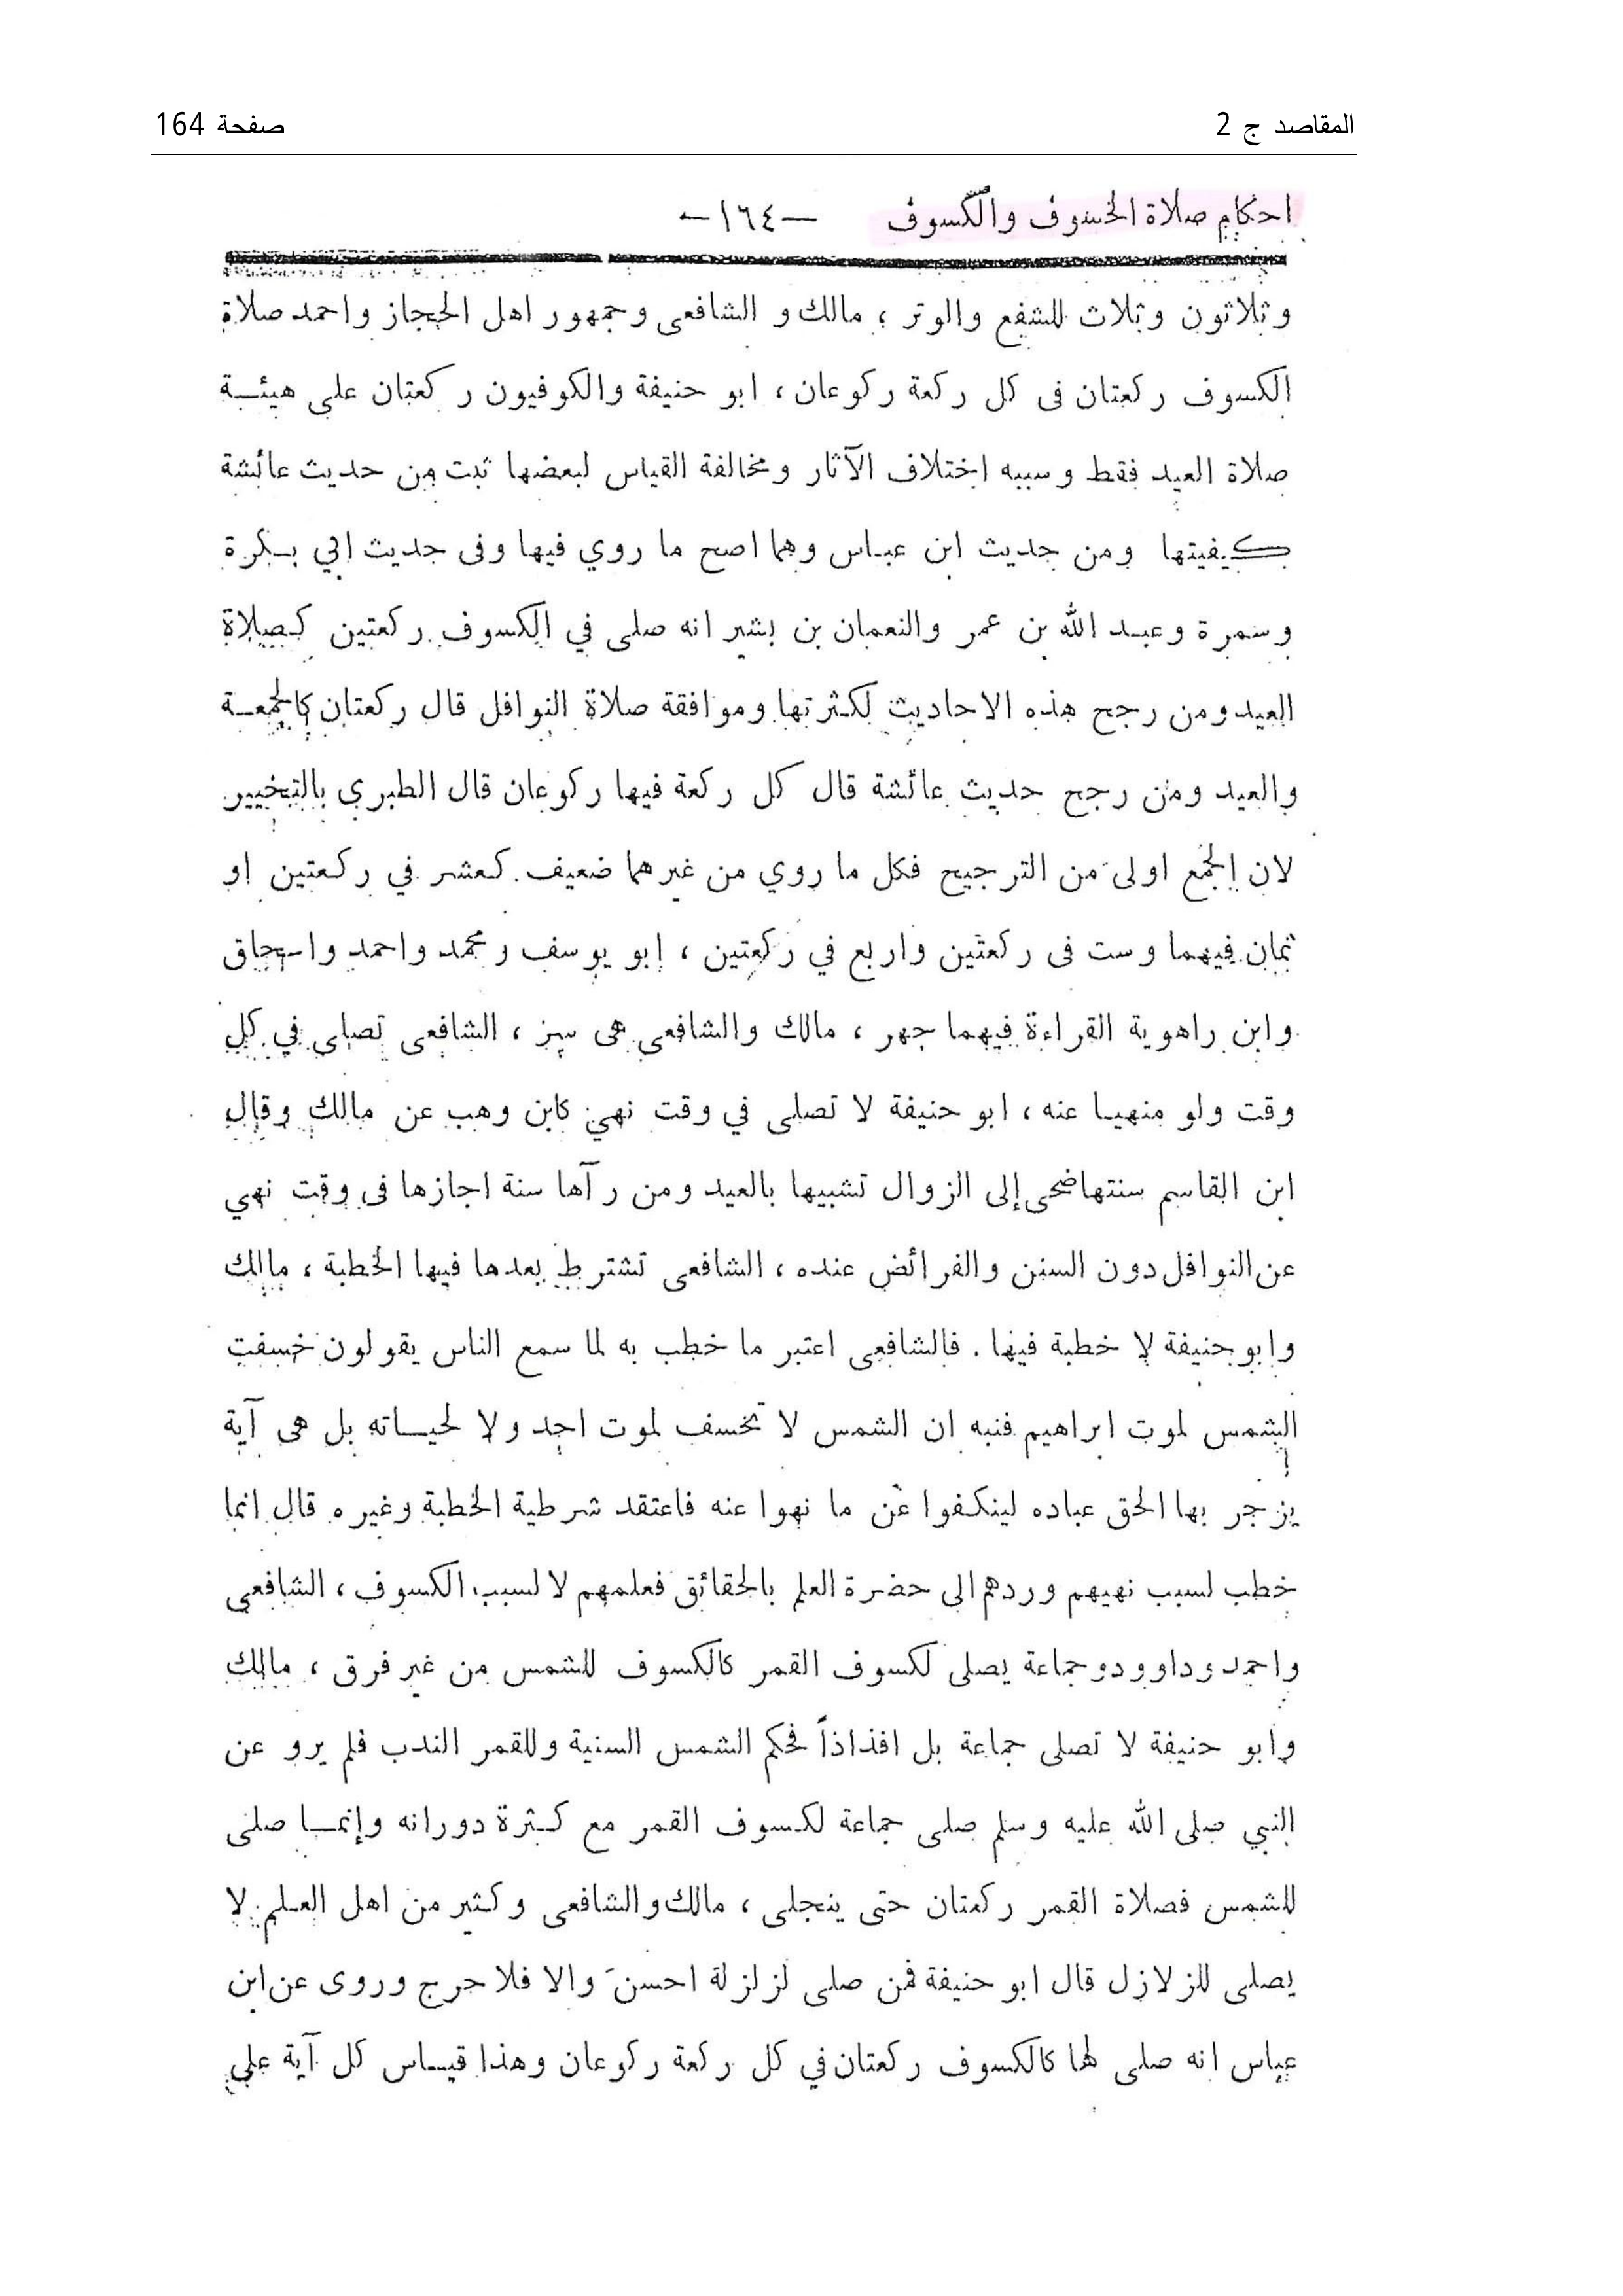 المقاصد ج 2 صفحة 164
احكام صلاة الخسوف والكسوف —١٦٤—
وثلاثون وثلاث للشفع والوتر ؛ مالك و الشافعى وجمهور اهل الحجاز واحمد صلاة
الكسوف ركعتان فى كل ركعة ركوعان ، ابو حنيفة والكوفيون ركعتان على هيئــة
صلاة العيد فقط وسببه اختلاف الآثار ومخالفة القياس لبعضها ثبت من حديث عائشة
كيفيتها ومن حديث ابن عباس وهما اصح ما روي فيها وفى حديث ابي بـكرة
وسمرة وعبـد الله بن عمر والنعمان بن بشير انه صلى في الكسوف ركعتين كـصلاة
العيد ومن رجح هذه الاحاديث لكثرتها وموافقة صلاة النوافل قال ركعتان كالجمعـة
والعيد ومن رجح حديث عائشة قال كل ركعة فيها ركوعان قال الطبري بالتخيير
لان الجمع اولى من الترجيح فكل ما روي من غيرهما ضعيف كـعشر في ركـعتين او
ثمان فيهما وست فى ركعتين واربع في ركعتين ، ابو يوسف ومحمد واحمد واسحاق
وابن راهوية القراءة فيهما جهر ، مالك والشافعى هى سر ، الشافعى تصلى في كل
وقت ولو منهيـا عنه ، ابو حنيفة لا تصلى في وقت نهي كابن وهب عن مالك وقال
ابن القاسم سنتها ضحى إلى الزوال تشبيها بالعيد ومن رآها سنة اجازها فى وقت نهي
عن النوافل دون السنن والفرائض عنده ، الشافعى تشترط بعدها فيها الخطبة ، مالك
وابو حنيفة لا خطبة فيها . فالشافعى اعتبر ما خطب به لما سمع الناس يقولون خسفت
الشمس لموت ابراهيم فنبه ان الشمس لا تخسف لموت احد ولا لحيــاته بل هى آية
يزجر بها الحق عباده لينكـفوا عن ما نهوا عنه فاعتقد شرطية الخطبة وغيره قال انما
خطب لسبب نهيهم وردهم الى حضرة العلم بالحقائق فعلمهم لا لسبب الكسوف ، الشافعى
واحمد وداوود وجماعة يصلى لكسوف القمر كالكسوف للشمس من غير فرق ، مالك
وابو حنيفة لا تصلى جماعة بل افذاذاً فحكم الشمس السنية وللقمر الندب فلم يرو عن
النبي صلى الله عليه وسلم صلى جماعة لكسوف القمر مع كـثرة دورانه وإنمــا صلى
للشمس فصلاة القمر ركعتان حتى ينجلى ، مالك والشافعى وكثير من اهل العـلم لا
يصلى للزلازل قال ابو حنيفة فمن صلى لزلزلة احسن والا فلا حرج وروى عن ابن
عباس انه صلى لها كالكسوف ركعتان في كل ركعة ركوعان وهذا قيـاس كل آية على